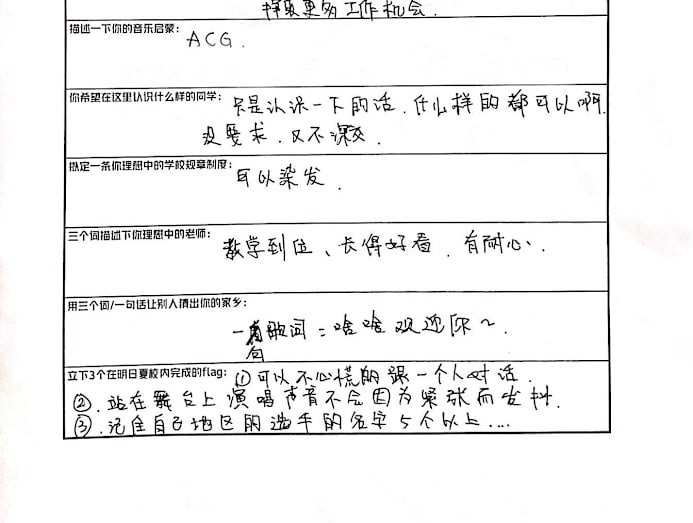 择取更多工作机会.
描述一下你的音乐启蒙: ACG.
你希望在这里认识什么样的同学: 只是认识一下的话.什么样的都可以啊.
没要求.又不深交.
拟定一条你理想中的学校规章制度:
可以染发.
三个词描述下你理想中的老师:
教学到位、长得好看.有耐心.
用三个词/一句话让别人猜出你的家乡:
一句歌词:啥啥欢迎你~.
立下3个在明日夏校内完成的flag: ①可以不心慌的跟一个人对话.
②.站在舞台上演唱声音不会因为紧张而发抖.
③.记住自己地区的选手的名字5个以上....